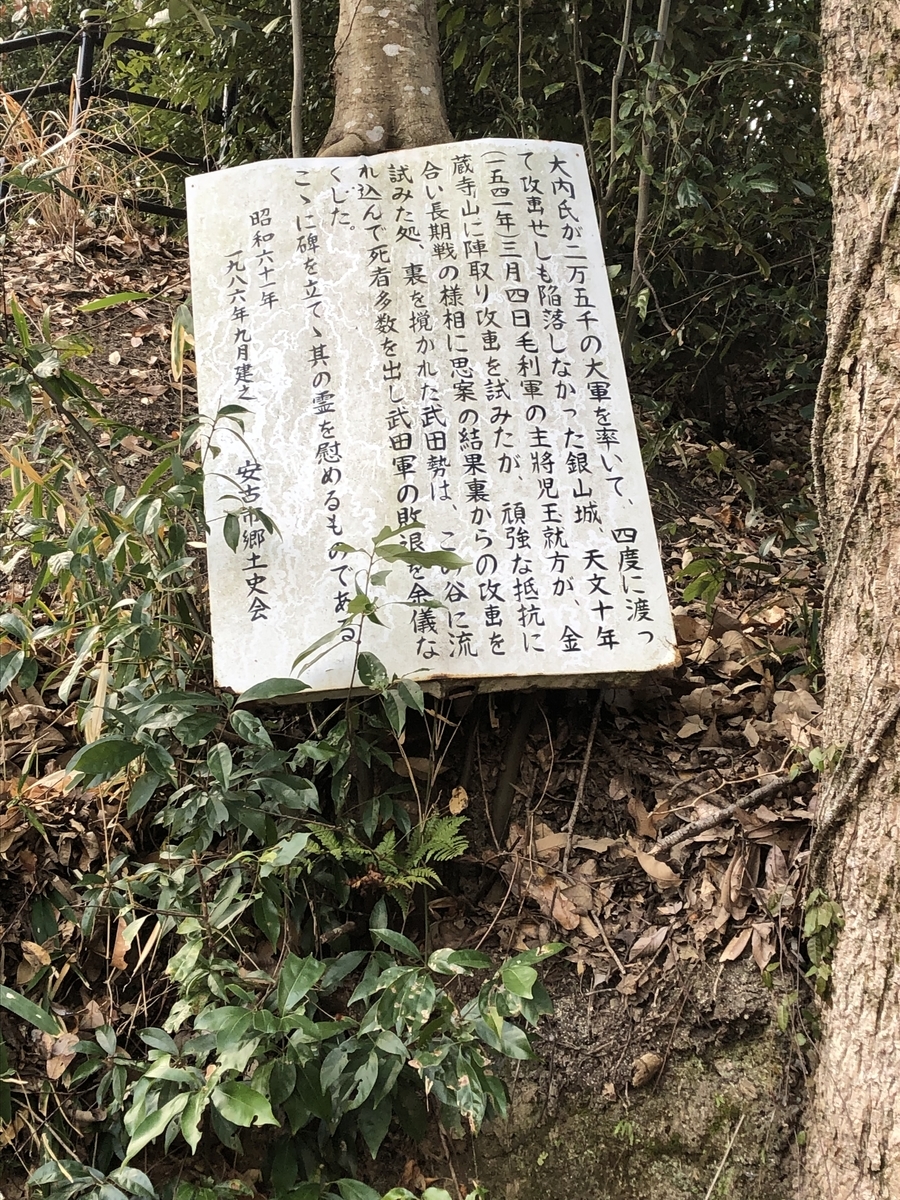 大内氏が二万五千の大軍を率いて、四度に渡っ
て攻重せしも陥落しなかった銀山城、天文十年
(一五四一年三月四日毛利軍の主將児王就方が、金
蔵寺山に陣取り攻重を試みたが、頑強な抵抗に
合い長期戦の様相に思案の結果裏からの攻重を
試みた処、裏を撹かれた武田勢は、この谷に流
れ込んで死者多数を出し武田軍の敗退を余儀な
くした。
こゝに碑を立てゝ其の霊を慰めるものである
昭和六十一年
一九八六年九月建之 安古市郷土史会